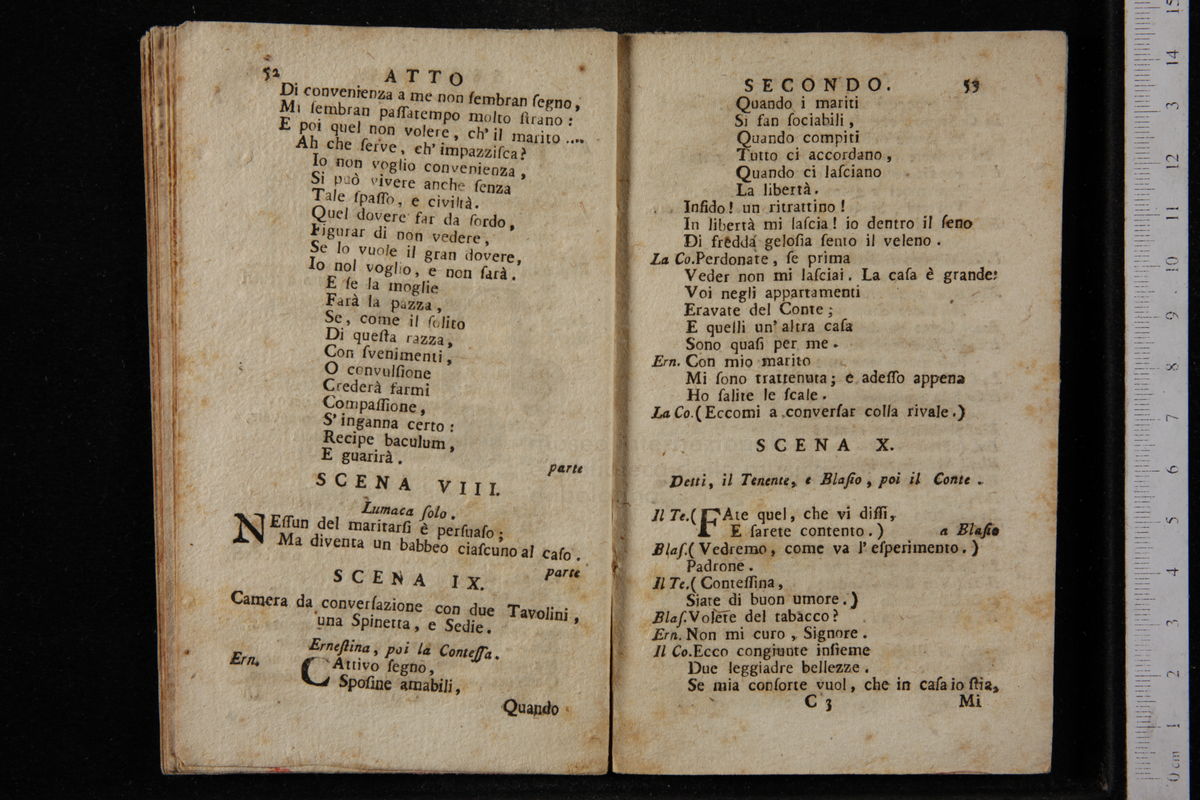 52 ATTO
Di convenienza a me non ſembran ſegno,
Mi ſembran paſſatempo molto ſtrano:
E poi quel non volere, ch' il marito ....
Ah che ſerve, ch' impazziſca?
Io non voglio convenienza,
Si può vivere anche ſenza
Tale ſpaſſo, e civiltà.
Quel dovere far da ſordo,
Figurar di non vedere,
Se lo vuole il gran dovere,
Io nol voglio, e non ſarà.
E ſe la moglie
Farà la pazza,
Se, come il ſolito
Di queſta razza,
Con ſvenimenti,
O convulſione
Crederà farmi
Compaſſione,
S' inganna certo:
Recipe baculum,
E guarirà.
parte
SCENA VIII.
Lumaca ſolo.
NEſſun del maritarſi è perſuaſo;
Ma diventa un babbeo ciaſcuno al caſo.
parte
SCENA IX.
Camera da converſazione con due Tavolini,
una Spinetta, e Sedie.
Erneſtina, poi la Conteſſa.
Ern. CAttivo ſegno,
Spoſine amabili,
Quando
SECONDO. 53
Quando i mariti
Si fan ſociabili,
Quando compiti
Tutto ci accordano,
Quando ci laſciano
La libertà.
Infido! un ritrattino!
In libertà mi laſcia! io dentro il ſeno
Di fredda geloſia ſento il veleno.
La Co. Perdonate, ſe prima
Veder non mi laſciai. La caſa è grande:
Voi negli appartamenti
Eravate del Conte;
E quelli un' altra caſa
Sono quaſi per me.
Ern. Con mio marito
Mi ſono trattenuta; e adeſſo appena
Ho ſalite le ſcale.
La Co. (Eccomi a converſar colla rivale.)
SCENA X.
Detti, il Tenente, e Blaſio, poi il Conte.
Il Te. (FAte quel, che vi diſſi,
E ſarete contento.) a Blaſio
Blaſ. (Vedremo, come va l' eſperimento.)
Padrone.
Il Te. (Conteſſina,
Siate di buon umore.)
Blaſ. Volete del tabacco?
Ern. Non mi curo, Signore.
Il Co. Ecco congiunte inſieme
Due leggiadre bellezze.
Se mia conſorte vuol, che in caſa io ſtia,
C 3 Mi
0 cm 1 2 3 4 5 6 7 8 9 10 11 12 13 14 15